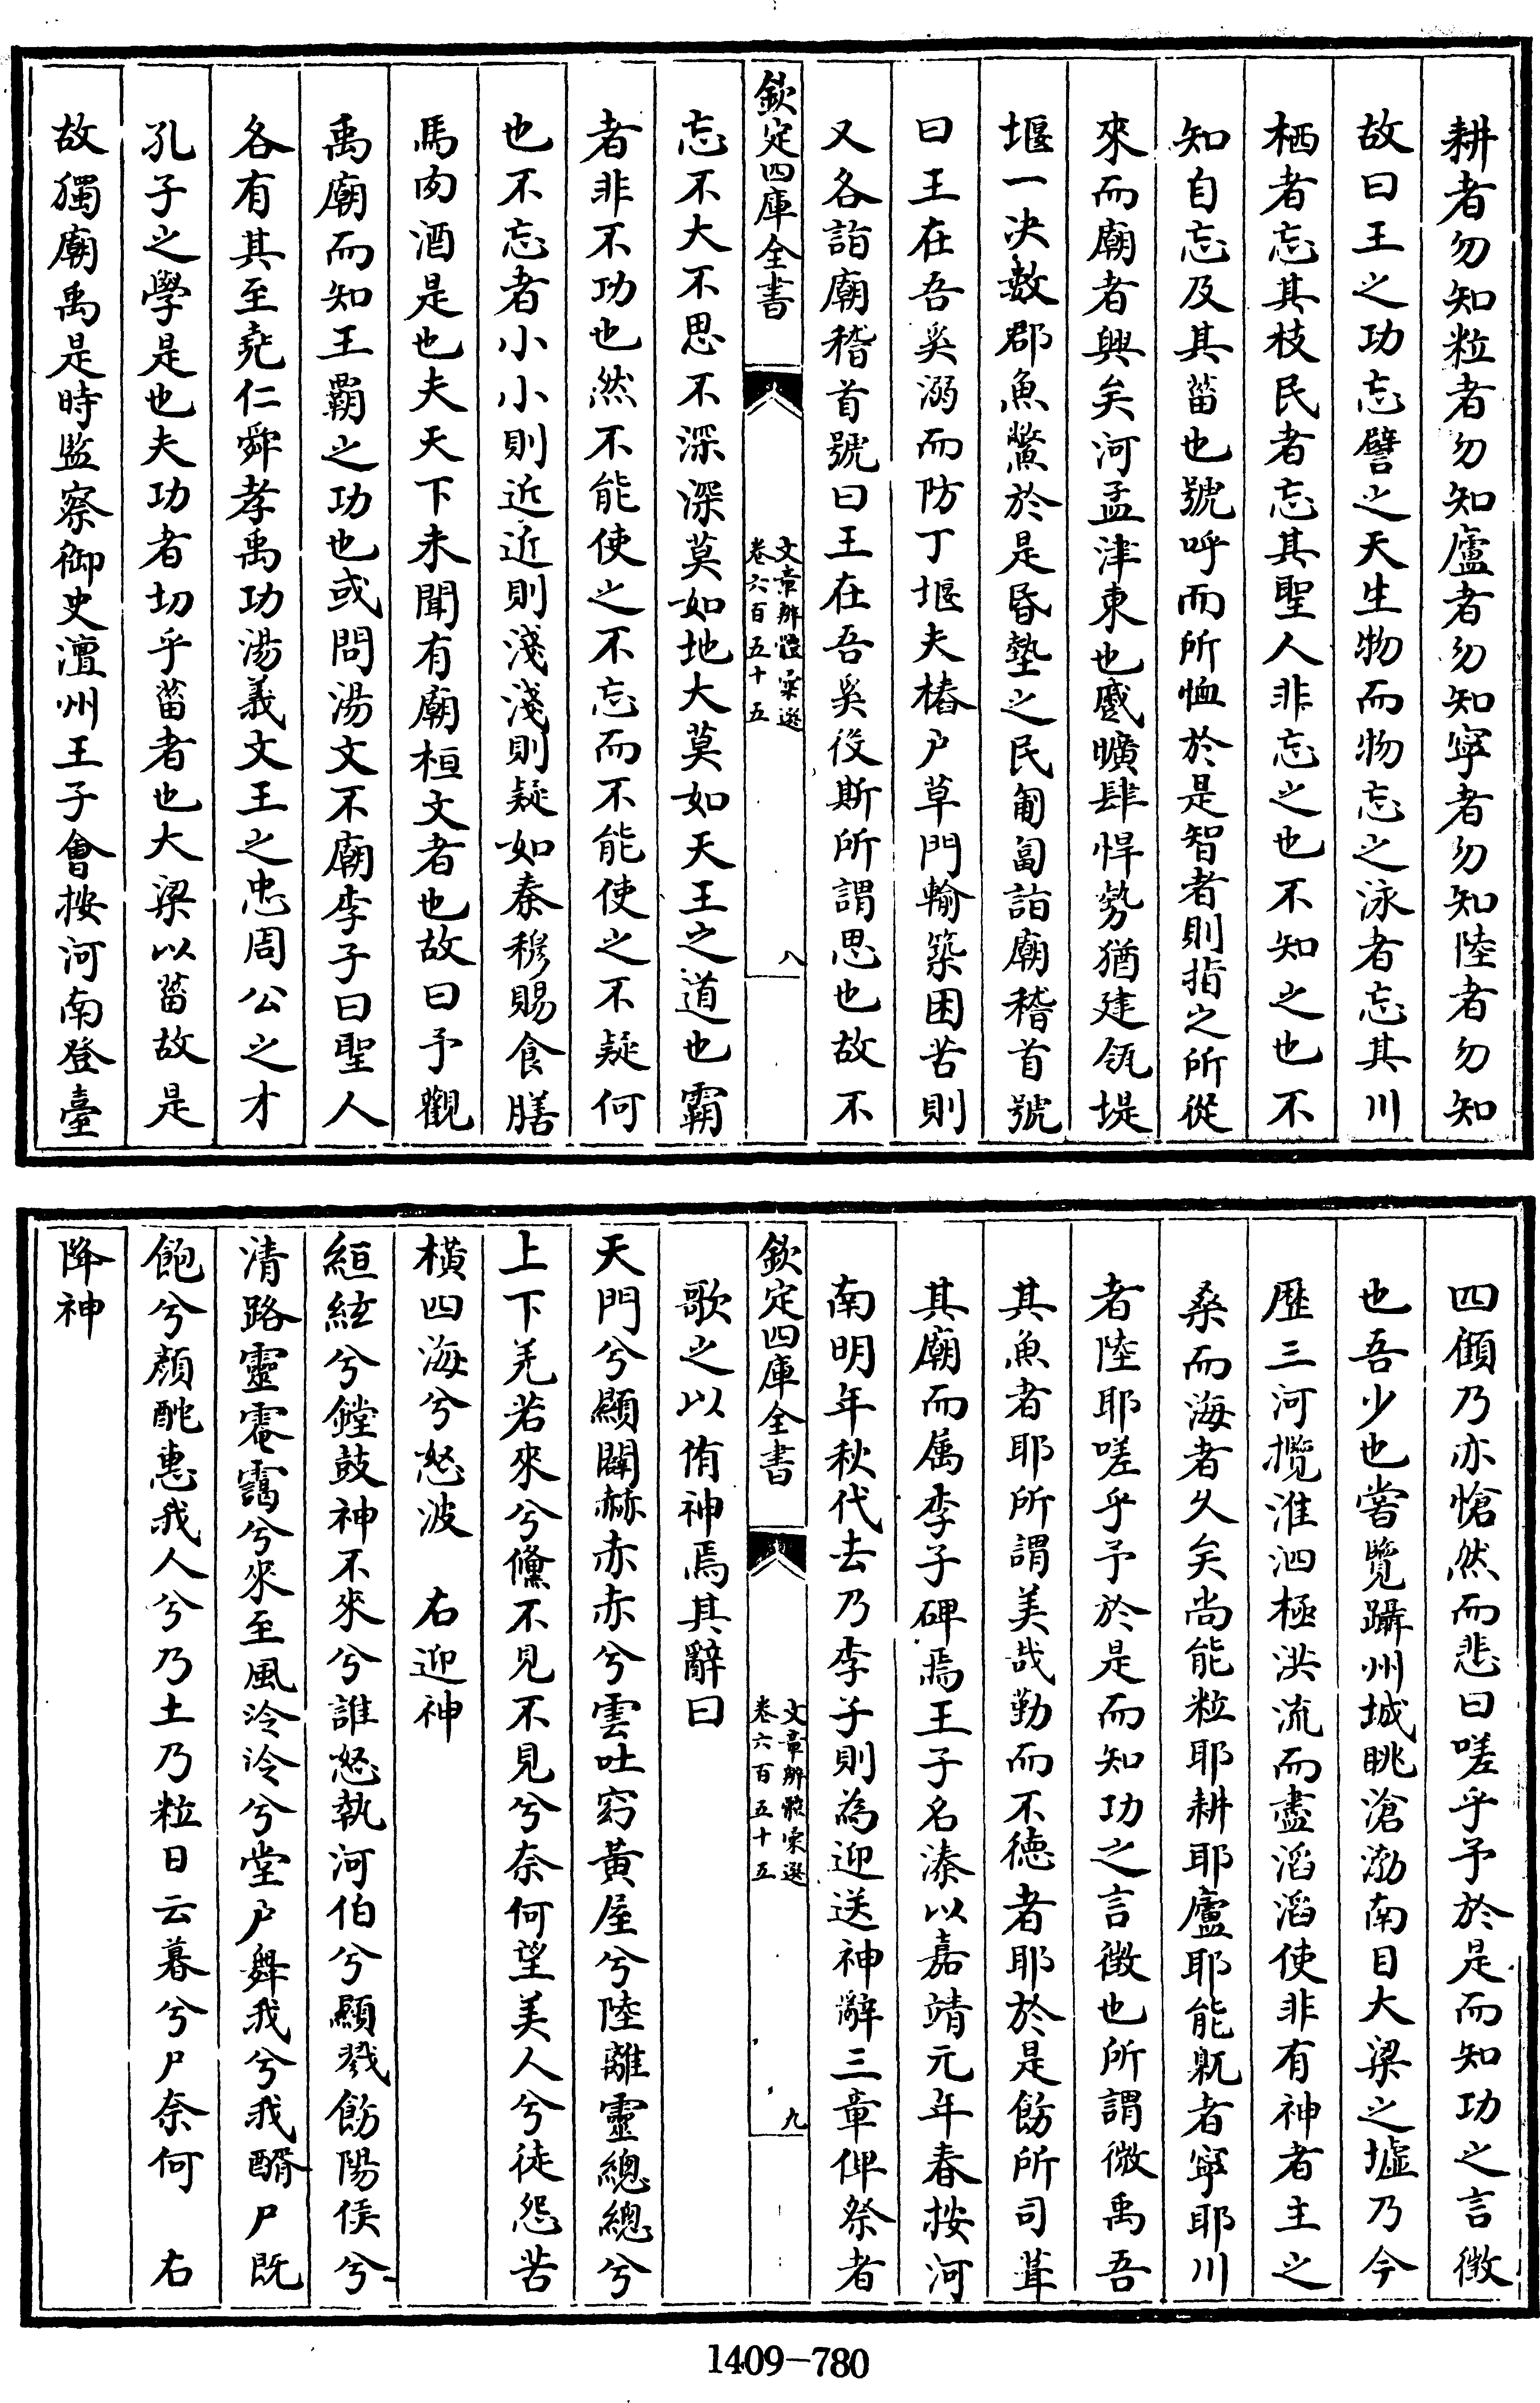 耕者勿知粒者勿知廬者勿知寧者勿知陸者勿知
故曰王之功忘譬之天生物而物忘之泳者忘其川
栖者忘其枝民者忘其聖人非忘之也不知之也不
知自忘及其菑也號呼而所恤於是智者則指之所從
來而廟者興矣河孟津東也慼曠肆悍勢猶建瓴堤
堰一决數郡魚鱉於是昏墊之民匍匐詣廟稽首號
曰王在吾奚溺而防丁堰夫樁户草門輸築困苦則
又各詣廟稽首號曰王在吾奚役斯所謂思也故不
欽定四庫全書
文章辨體彙選
卷六百五十五
八
忘不大不思不深深莫如地大莫如天王之道也霸
者非不功也然不能使之不忘而不能使之不疑何
也不忘者小小則近近則淺淺則疑如秦穆賜食膳
馬肉酒是也夫天下未聞有廟桓文者也故曰予觀
禹廟而知王霸之功也或問湯文不廟李子曰聖人
各有其至堯仁舜孝禹功湯義文王之忠周公之才
孔子之學是也夫功者切乎菑者也大梁以菑故是
故獨廟禹是時監察御史澶州王子會按河南登臺
四顧乃亦愴然而悲曰嗟乎予於是而知功之言徴
也吾少也嘗覽躡州城眺滄渤南目大梁之墟乃今
歴三河攬淮泗極洪流而盡滔滔使非有神者主之
桑而海者久矣尚能粒耶耕耶廬耶能觀者寧耶川
者陸耶嗟乎予於是而知功之言徴也所謂微禹吾
其魚者耶所謂美哉勤而不徳者耶於是飭所司葺
其廟而属李子碑焉王子名溱以嘉靖元年春按河
南明年秋代去乃李子則為迎送神辭三章俾祭者
欽定四庫全書
文章辨體彙選
卷六百五十五
九
歌之以侑神焉其辭曰
天門兮顯闢赫赤赤兮雲吐窈黄屋兮陸離靈總總兮
上下羌若來兮儵不見不見兮奈何望美人兮徒怨苦
横四海兮怒波　右迎神
絙絃兮鏜鼓神不來兮誰怒執河伯兮顯戮飭陽侯兮
清路靈䨠靄兮來至風泠泠兮堂户舞我兮我醑尸既
飽兮顔酡惠我人兮乃土乃粒日云暮兮尸奈何　右
降神
1409-780